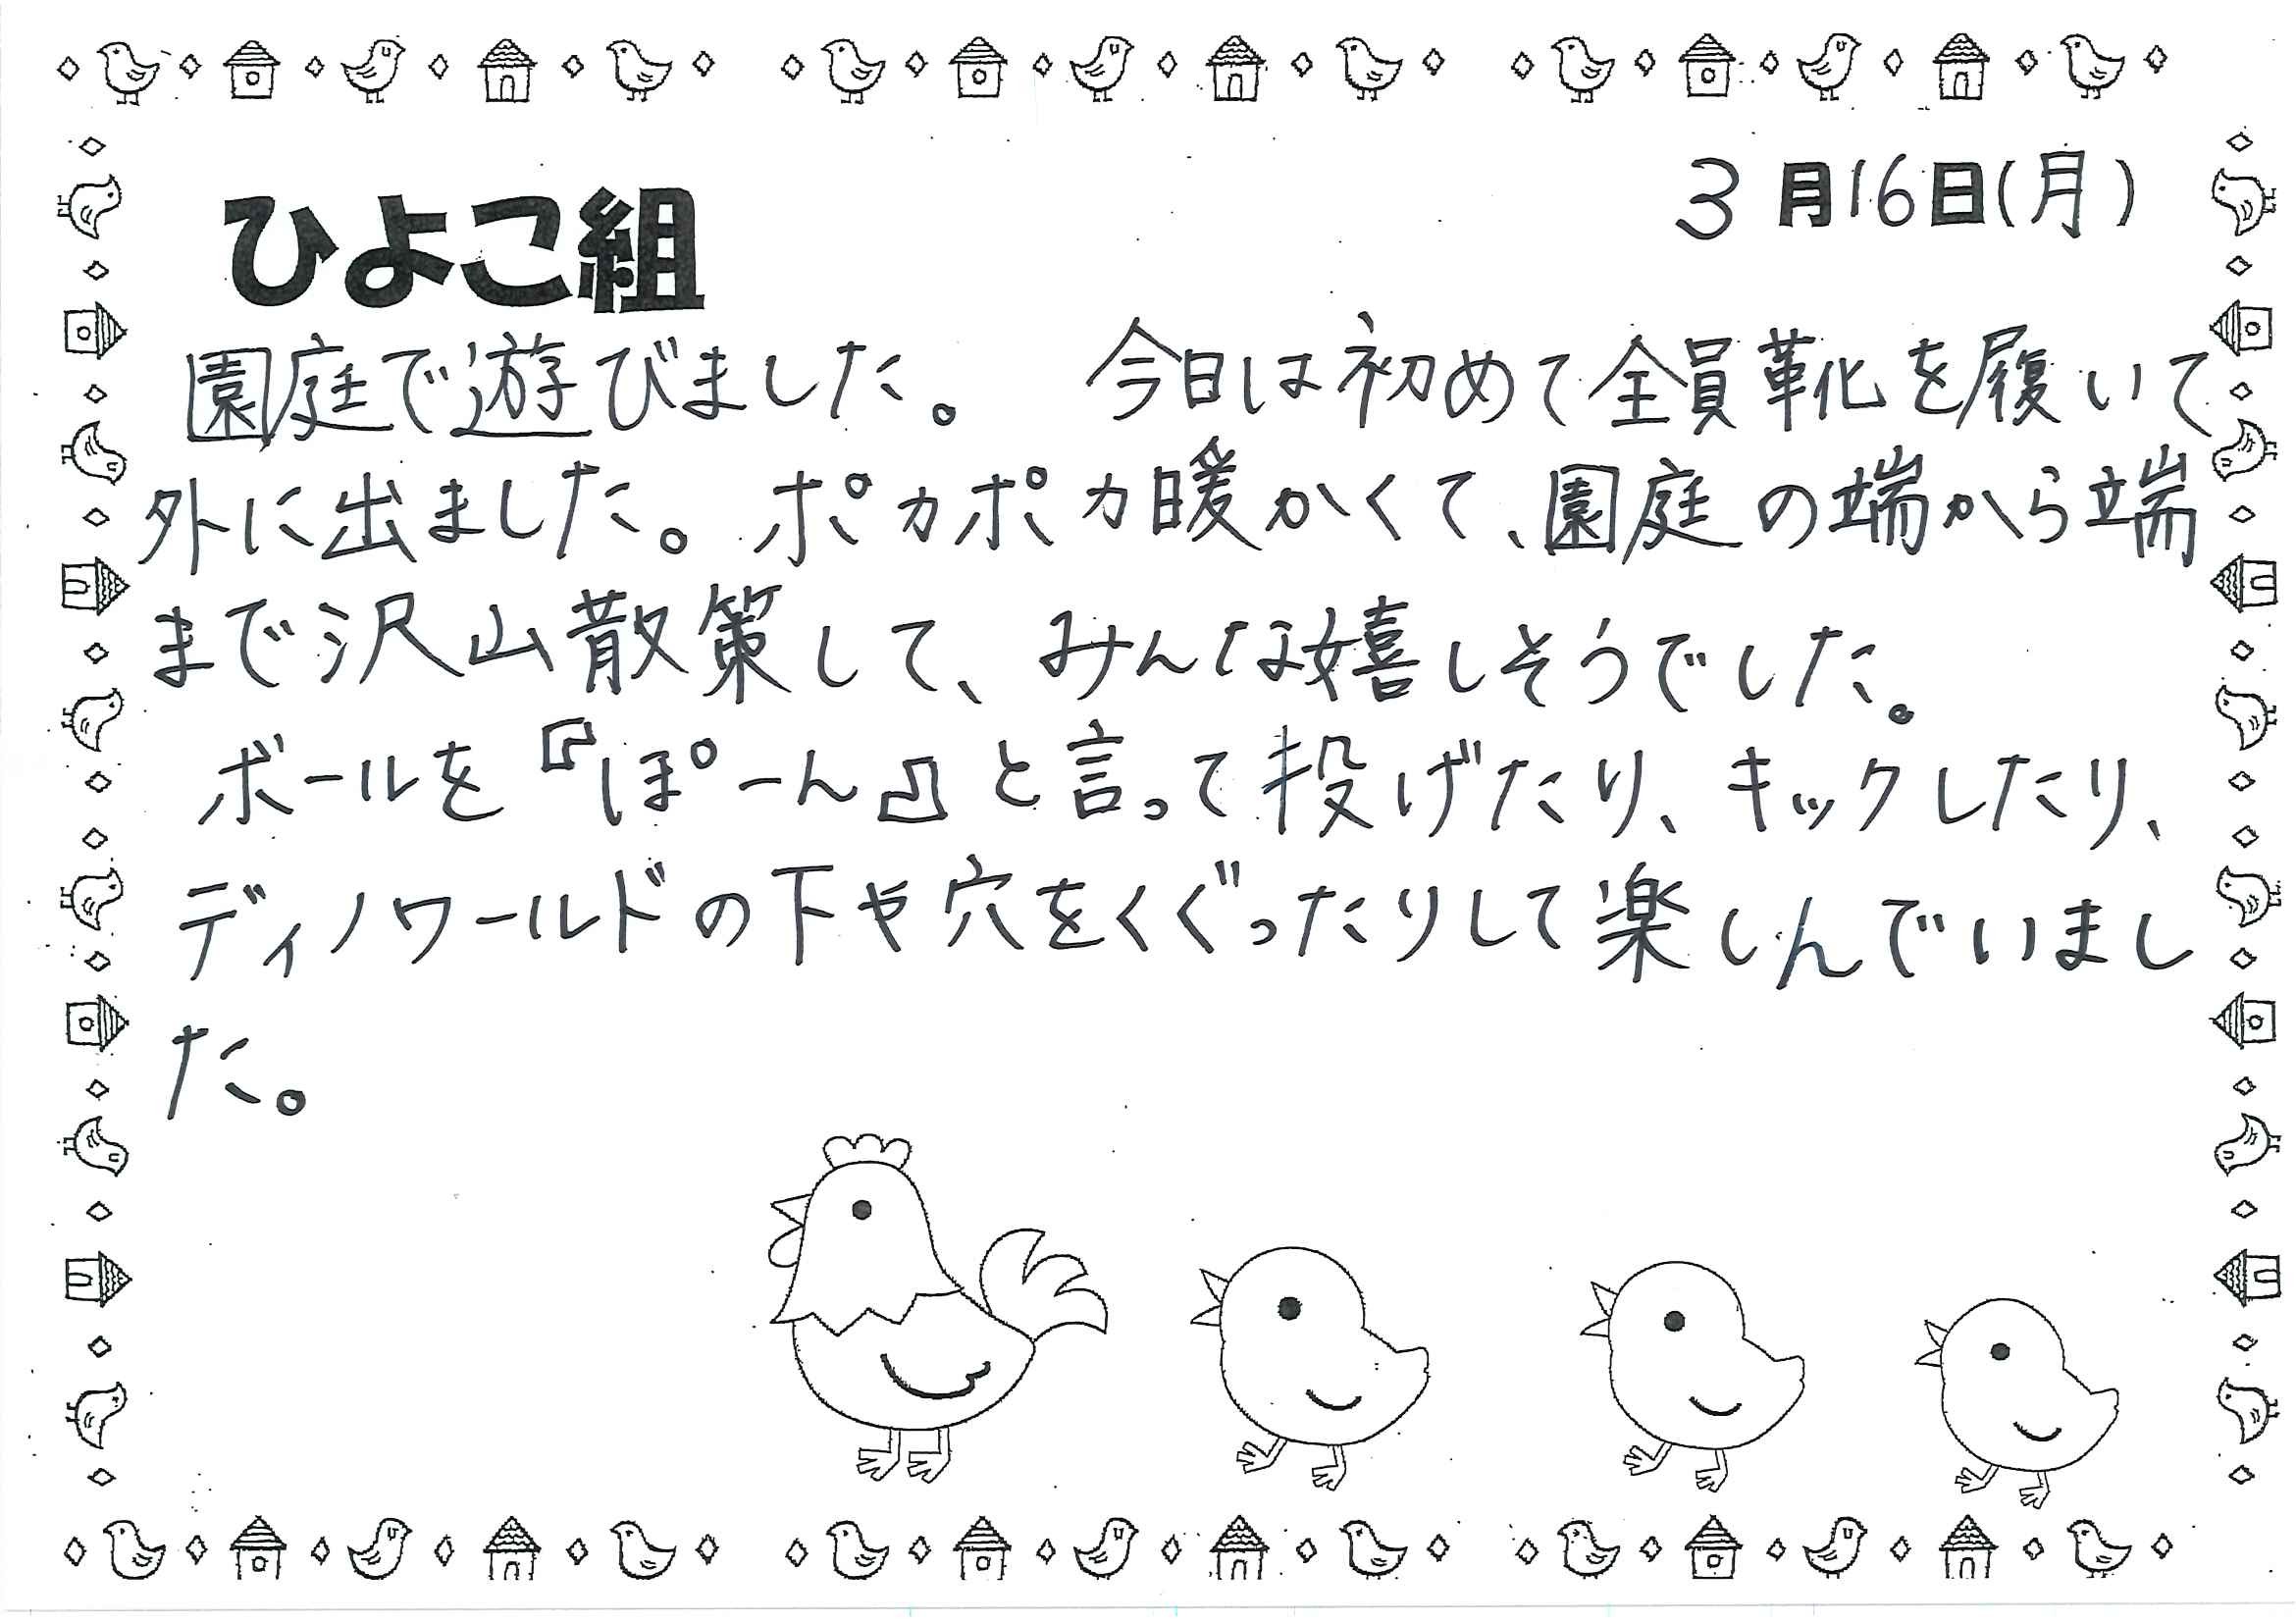 3月16日(月)
ひよこ組
園庭で遊びました。 今日は初めて全員靴を履いて
外に出ました。ポカポカ暖かくて、園庭の端から端
まで沢山散策して、みんな嬉しそうでした。
ボールを『ぽーん』と言って投げたり、キックしたり、
ディノワールドの下や穴をくぐったりして楽しんでいまし
た。